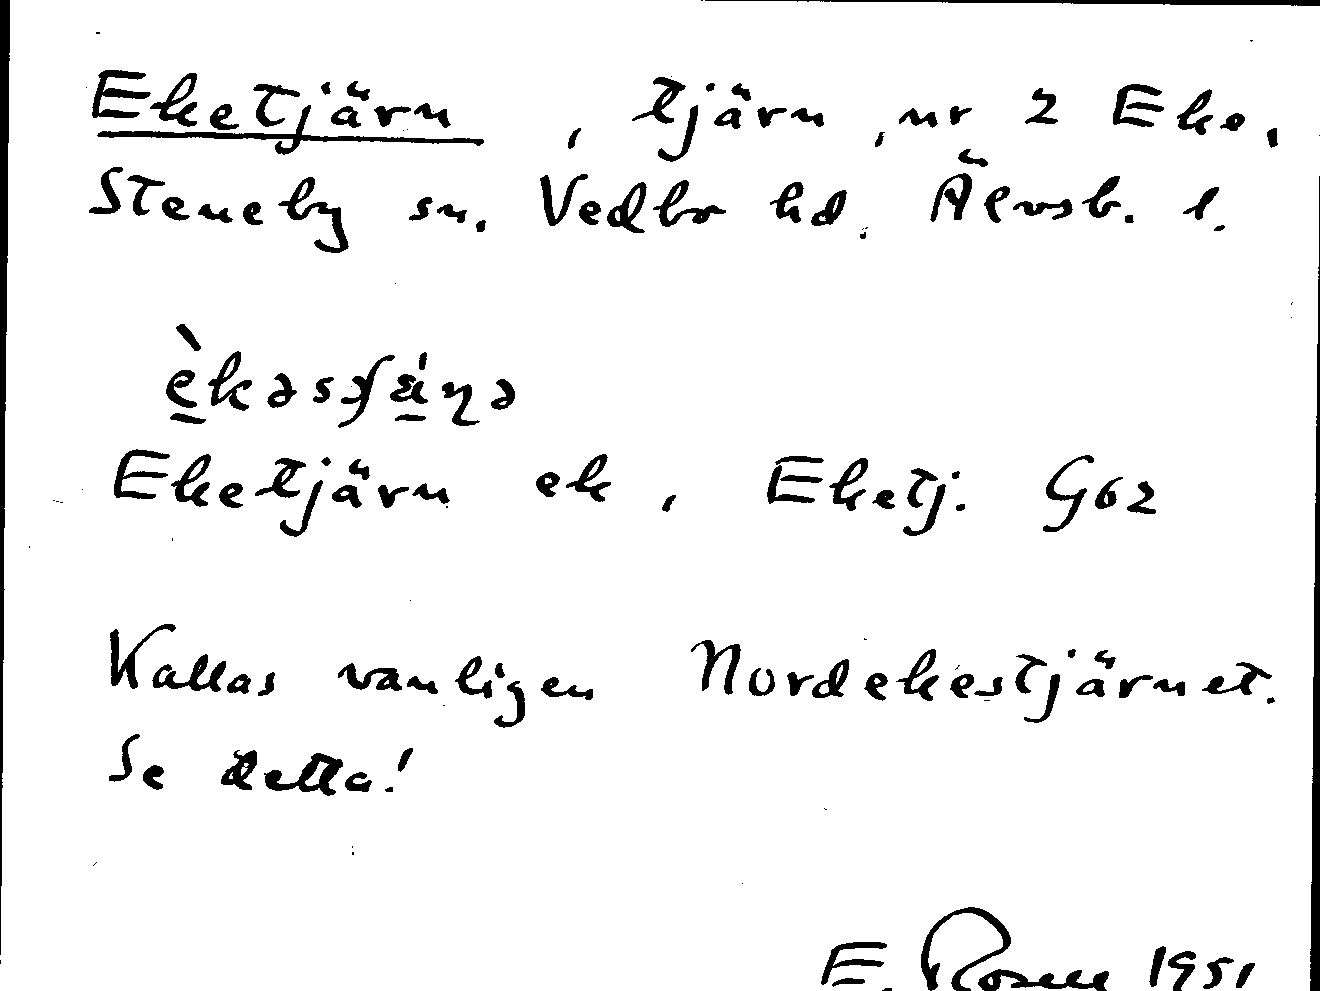 Eketjärn, tjärn, nr 2 Eke,
Steneby sn. Vedbo hd. Älvsb. l.
Eketjärn ek, Eketj. G62
Kallas vanligen Nordekestjärnet.
Se detta!
E. Rosen 1951